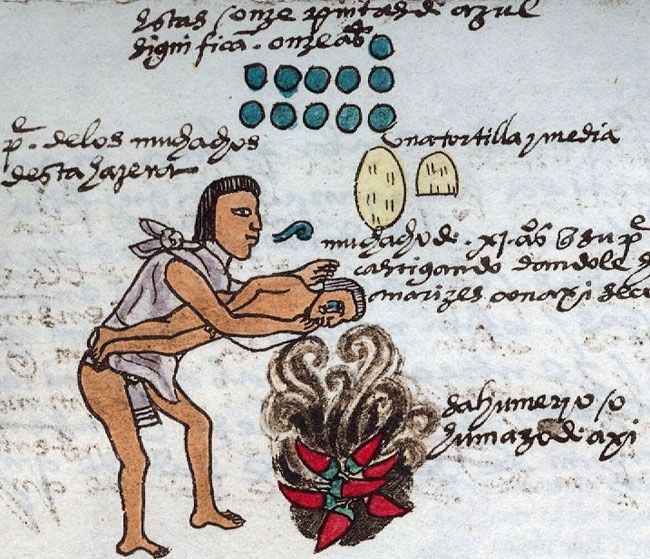 estas onze pintas de azul
significa. onze aos
pe. de los muchachos
desta hazera
una tortilla y media
muchacho de .xi. aos su pe
castigando dandole
narizes con axi seco
sahumerio
humazo de axi